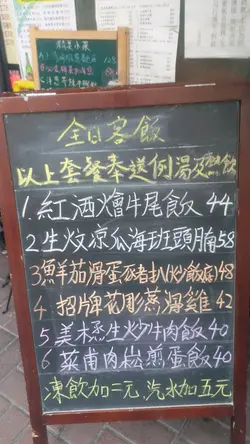 精美小菜
全日客飯
以上套餐奉送例湯及熱飲
1.紅酒燴牛尾飯44
2生炆凉瓜海班頭腩58
3鮮茄滑蛋豬扒(炒飯底)48
4 招牌花彫蒸海雞42
5 美極生炒牛肉飯40
6 菜甫肉崧煎蛋飯40
凍飲加二元,汽水加五元